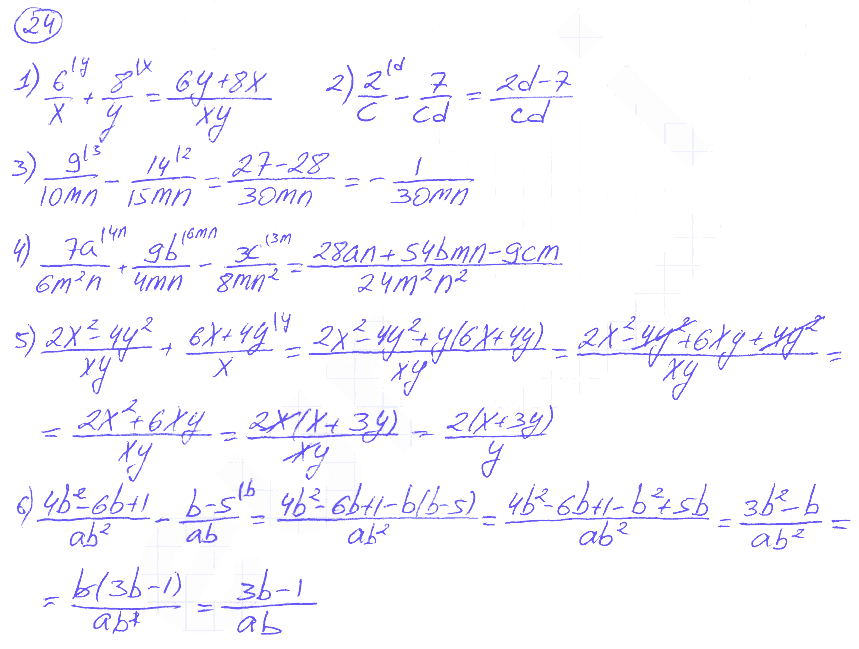 24
1) 6^{|y}/x + 8^{|x}/y = (6y+8x)/(xy)   2) 2^{|d}/c - 7/(cd) = (2d-7)/(cd)
3) 9^{|3}/(10mn) - 14^{|2}/(15mn) = (27-28)/(30mn) = - 1/(30mn)
4) 7a^{|4n}/(6m²n) + 9b^{|6mn}/(4mn) - 3c^{|3m}/(8mn²) = (28an+54bmn-9cm)/(24m²n²)
5) (2x²-4y²)/(xy) + (6x+4y)^{|y}/x = (2x²-4y²+y(6x+4y))/(xy) = (2x²-4y²+6xy+4y²)/(xy) =
= (2x²+6xy)/(xy) = (2x(x+3y))/(xy) = (2(x+3y))/y
6) (4b²-6b+1)/(ab²) - (b-5)^{|b}/(ab) = (4b²-6b+1-b(b-5))/(ab²) = (4b²-6b+1-b²+5b)/(ab²) = (3b²-b)/(ab²) =
= (b(3b-1))/(ab²) = (3b-1)/(ab)